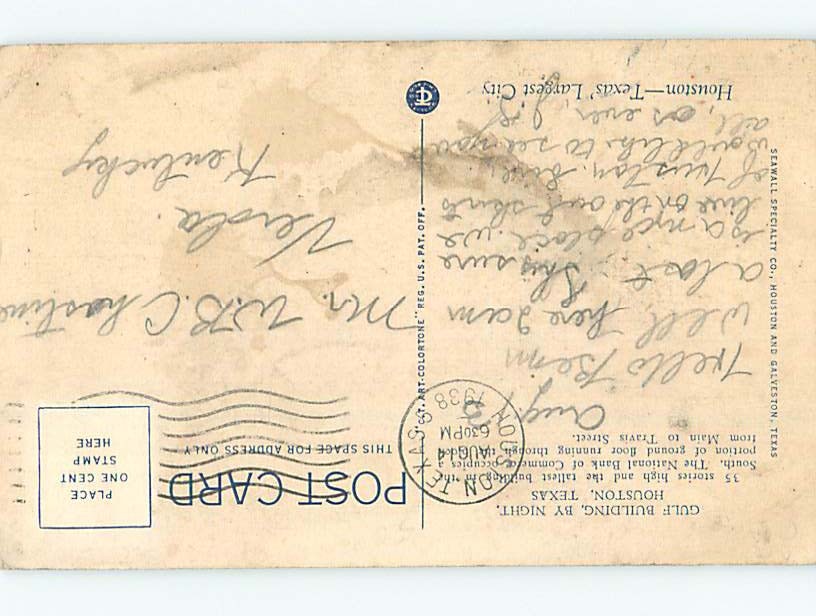 GULF BUILDING, BY NIGHT,
HOUSTON, TEXAS
35 stories high and the tallest building in the
South. The National Bank of Commerce occupies a
portion of ground floor running through
from Main to Travis Street.
Aug.
Hello Benn
Well here I am
a last, This sure
is a nice place. we
live on the out skirts
of Huston,
would like to see you
all, as ever,
Houston—Texas' Largest City
SEAWALL SPECIALTY CO., HOUSTON AND GALVESTON, TEXAS
"C.T. ART-COLORTONE" REG. U.S. PAT. OFF.
POST CARD
THIS SPACE FOR ADDRESS ONLY
PLACE
ONE CENT
STAMP
HERE
HOUSTON TEXAS
AUG 14
630PM
1938
Mr. W.B. Chastine
Verda
Kentucky